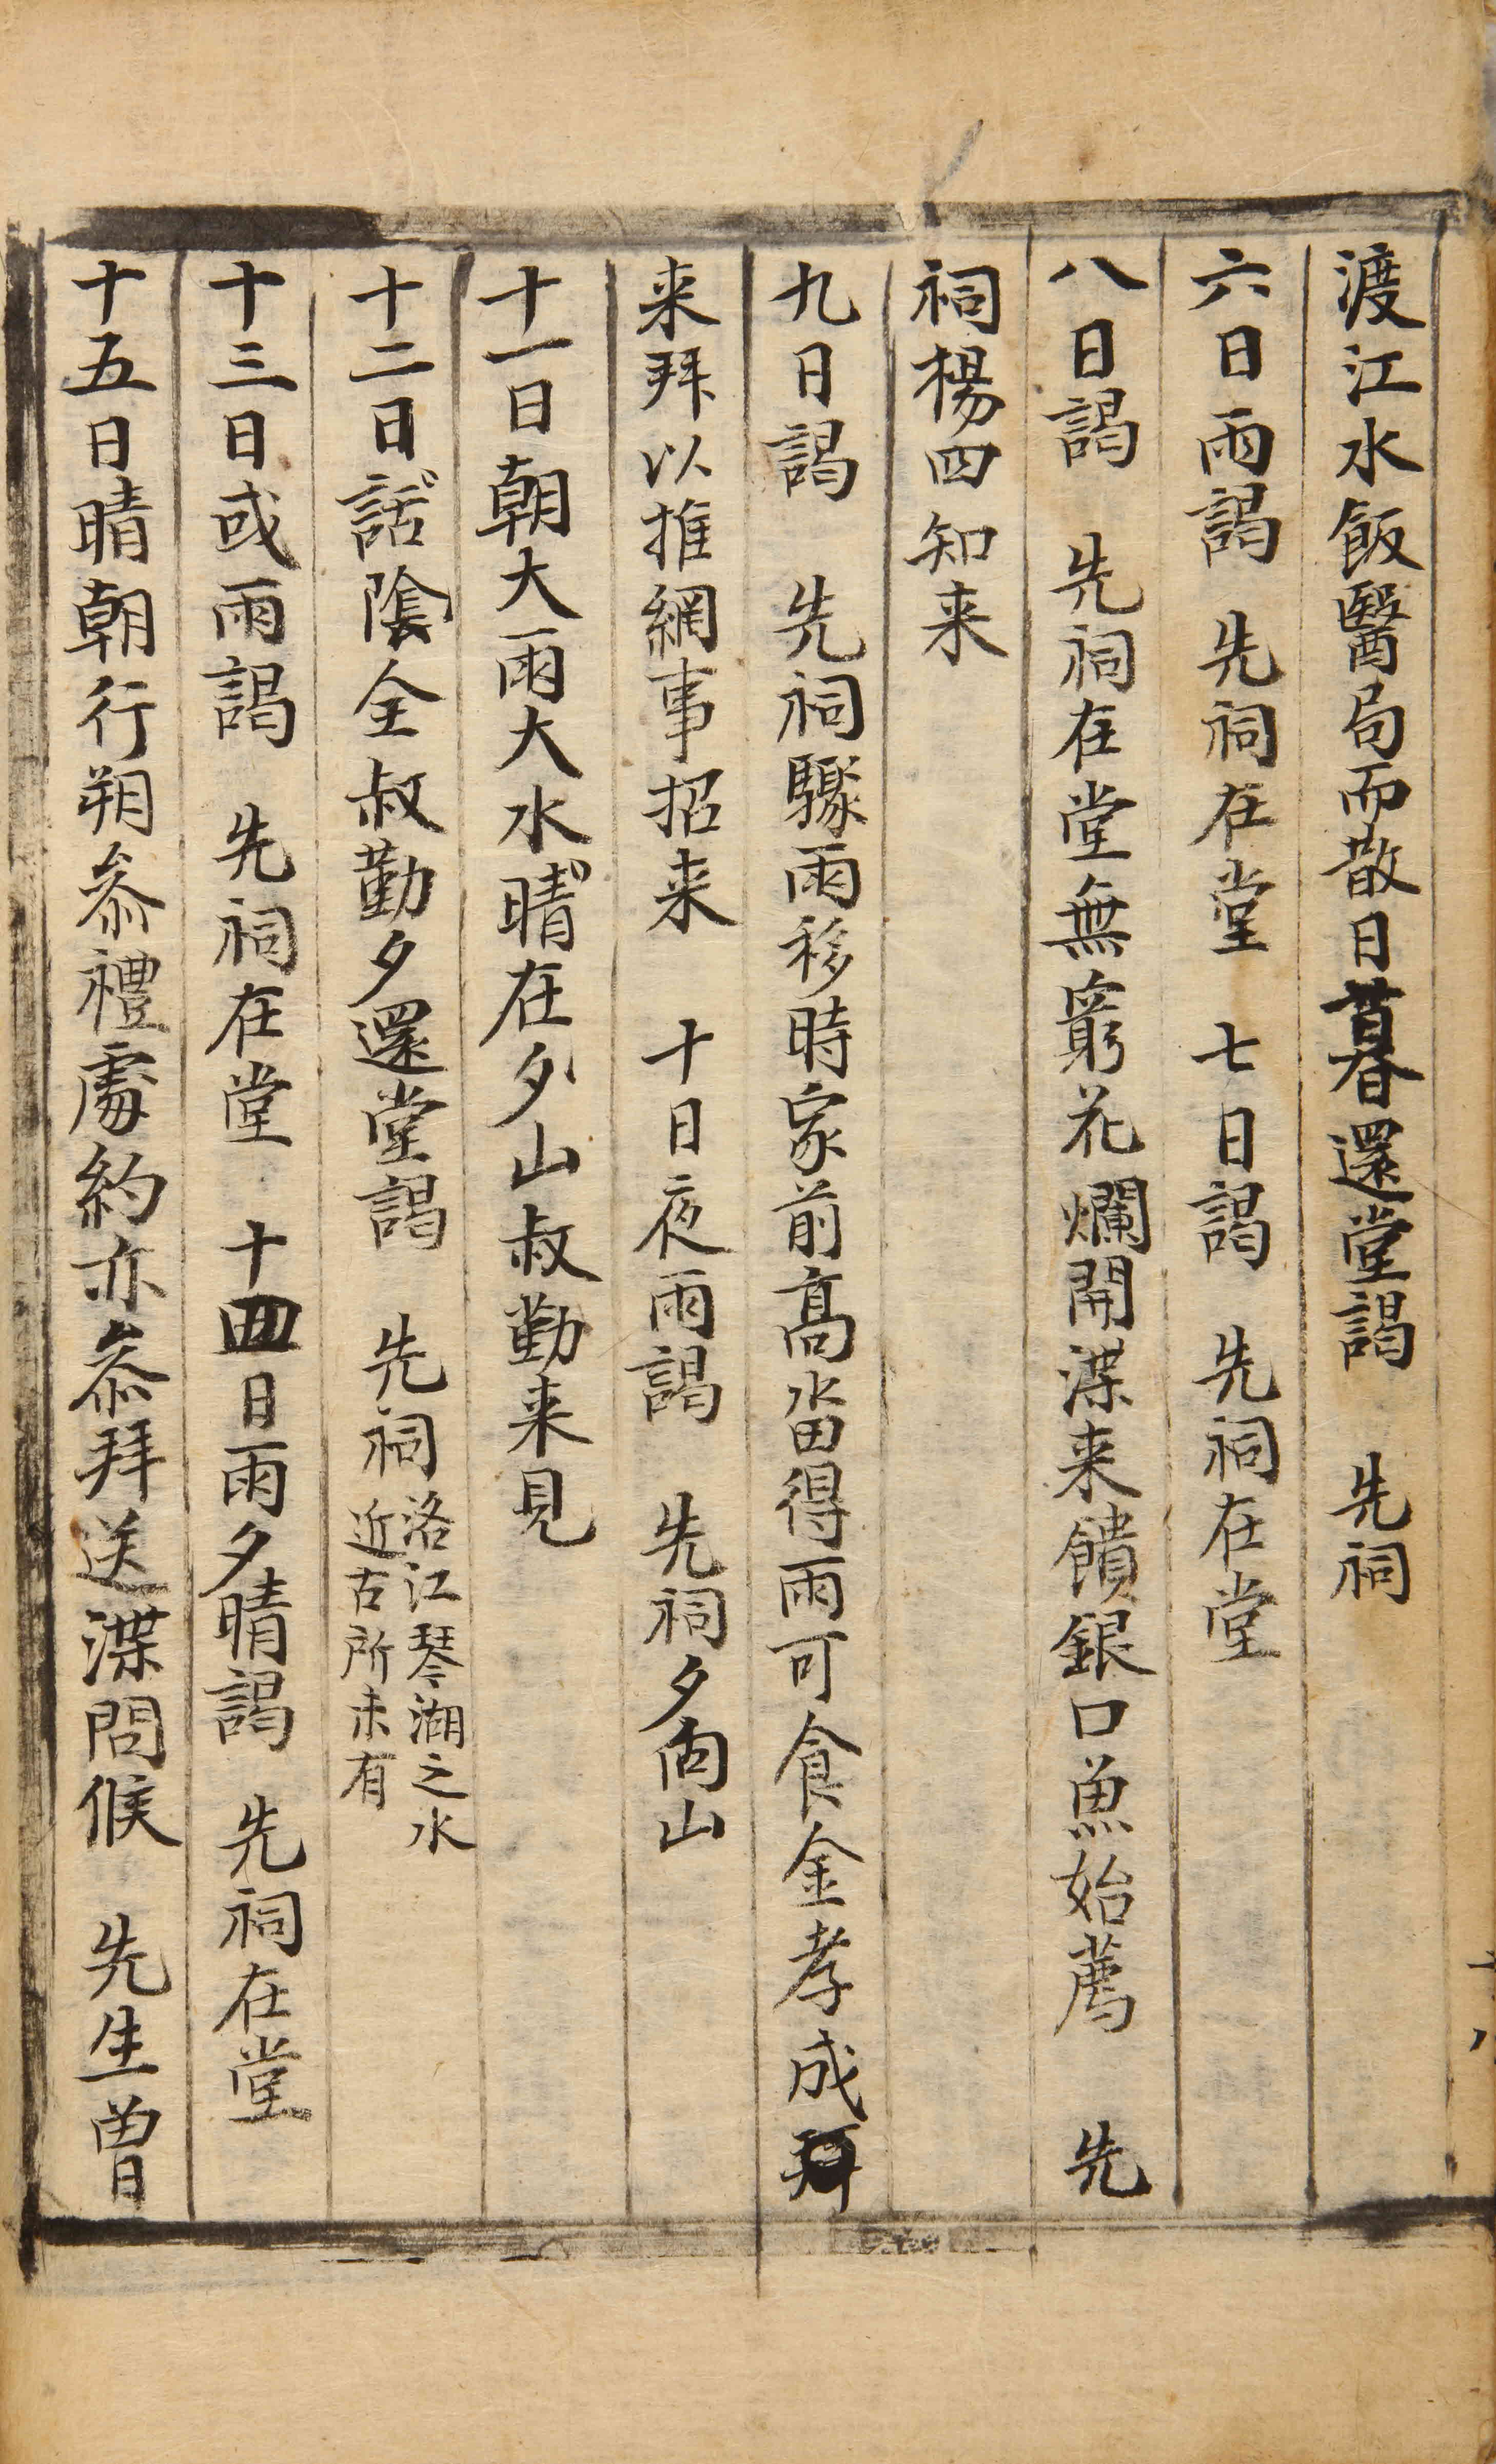 渡江水飯醫局而散日暮還堂謁　先祠
六日雨謁　先祠在堂　七日謁　先祠在堂
八日謁　先祠在堂無窮花爛開渫来饋銀口魚始薦　先
祠楊四知来
九日謁　先祠驟雨移時家前高畓得雨可食金孝成
来拜以推網事招来　十日夜雨謁　先祠夕向山
十一日朝大雨大水晴在夕山叔勤来見
十二日話陰全叔勤夕還堂謁　先祠洛江琴湖之水
近古所未有
十三日或雨謁　先祠在堂　十四日雨夕晴謁　先祠在堂
十五日晴朝行朔叅禮處約亦叅拜送渫問候　先生曾